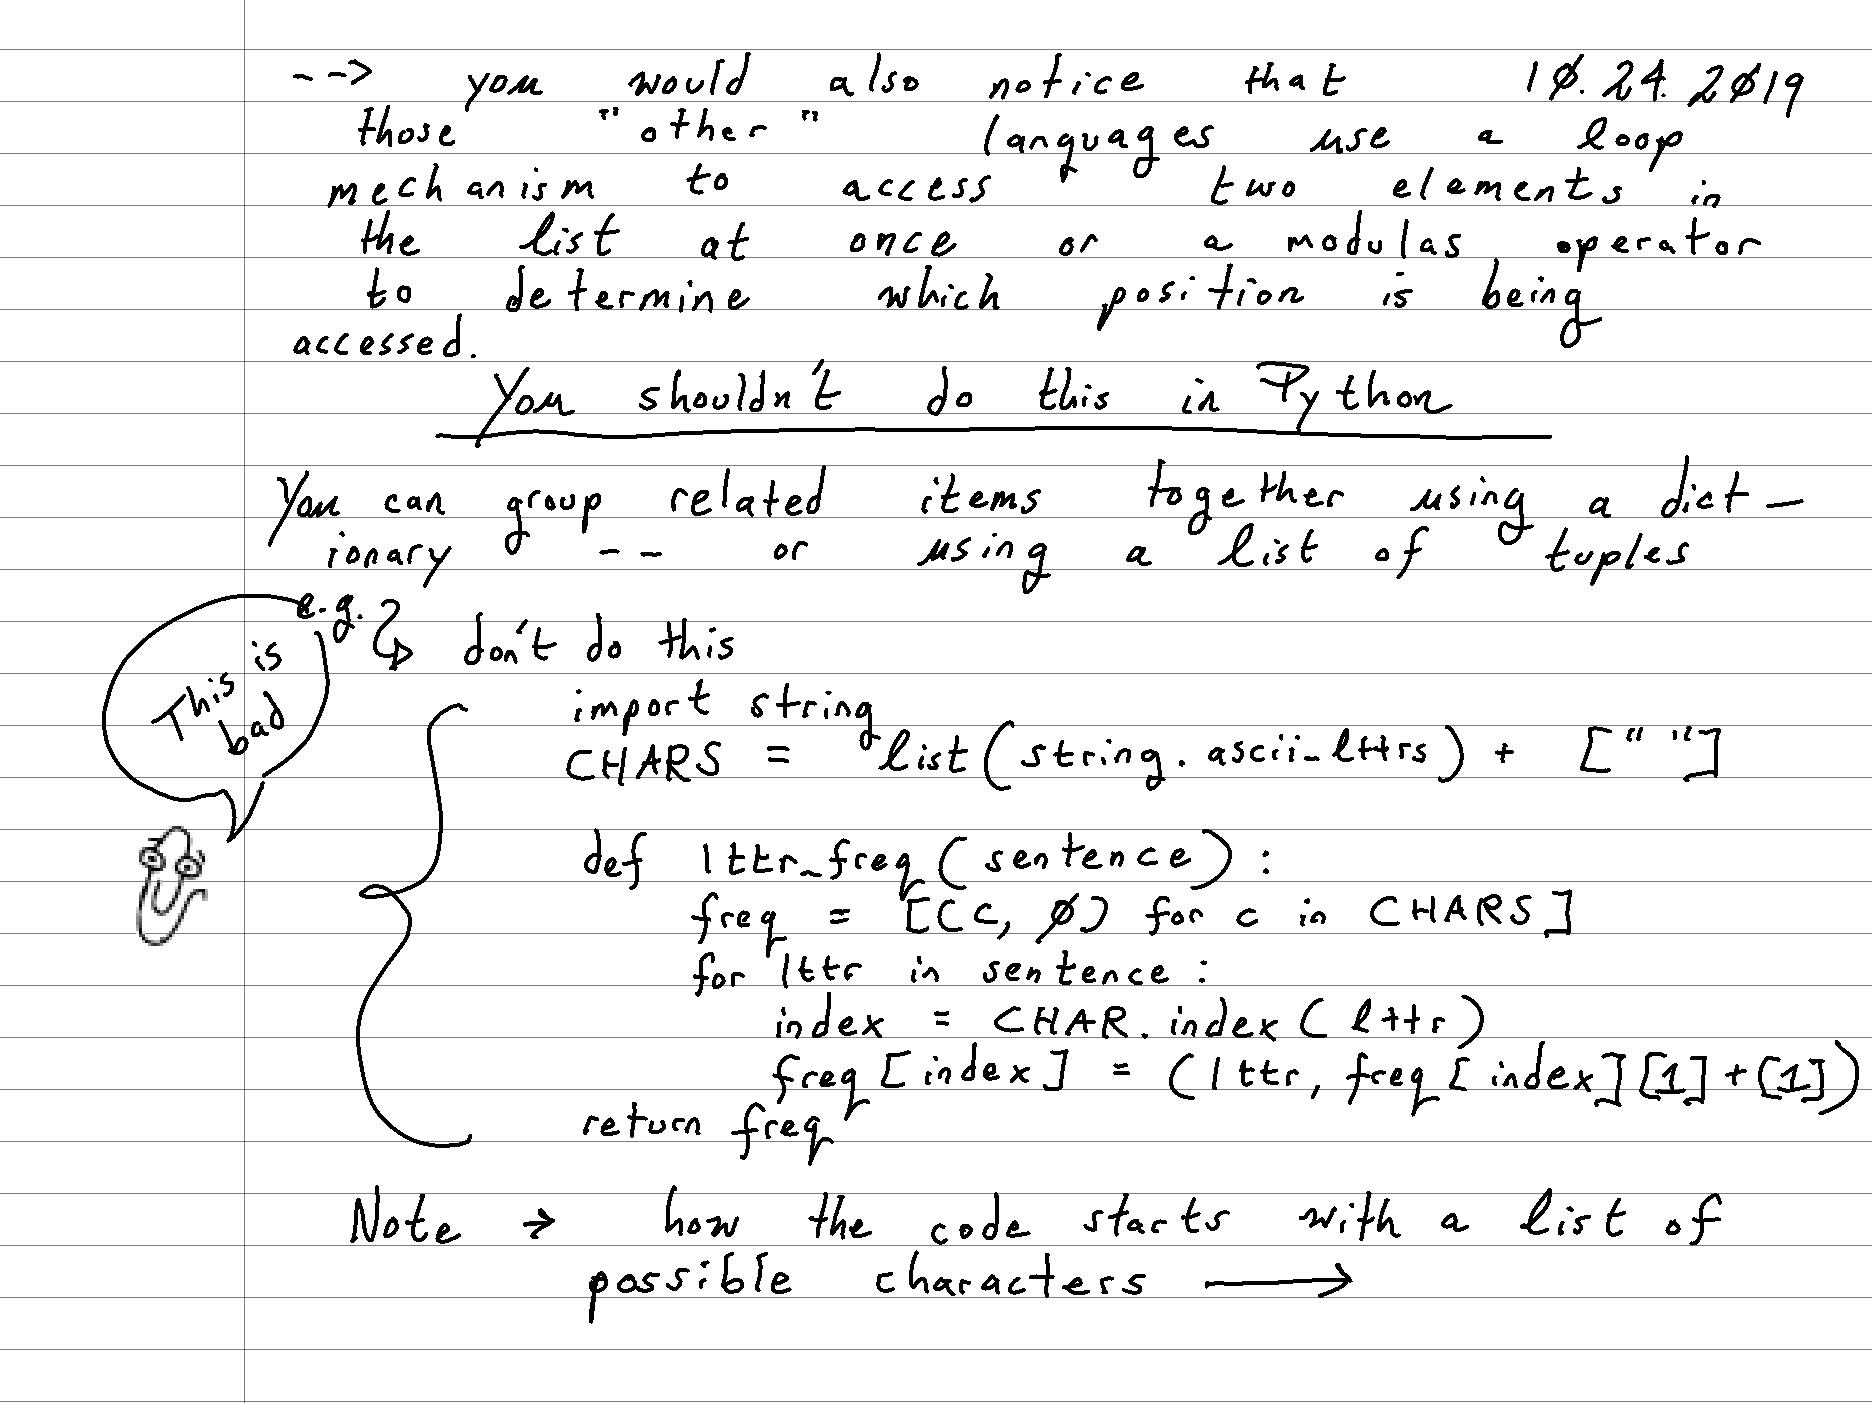 --> you would also notice that 10.24.2019
those "other" languages use a loop
mechanism to access two elements in
the list at once or a modulas operator
to determine which position is being
accessed.
You shouldn't do this in Python
You can group related items together using a dict-
ionary -- or using a list of tuples
e.g. don't do this
This is
bad
import string
CHARS = list(string.ascii_lttrs) + [" "]
def lttr_freq(sentence):
freq = [(c, 0) for c in CHARS]
for lttr in sentence:
index = CHAR.index(lttr)
freq[index] = (lttr, freq[index][1]+[1])
return freq
Note → how the code starts with a list of
possible characters →